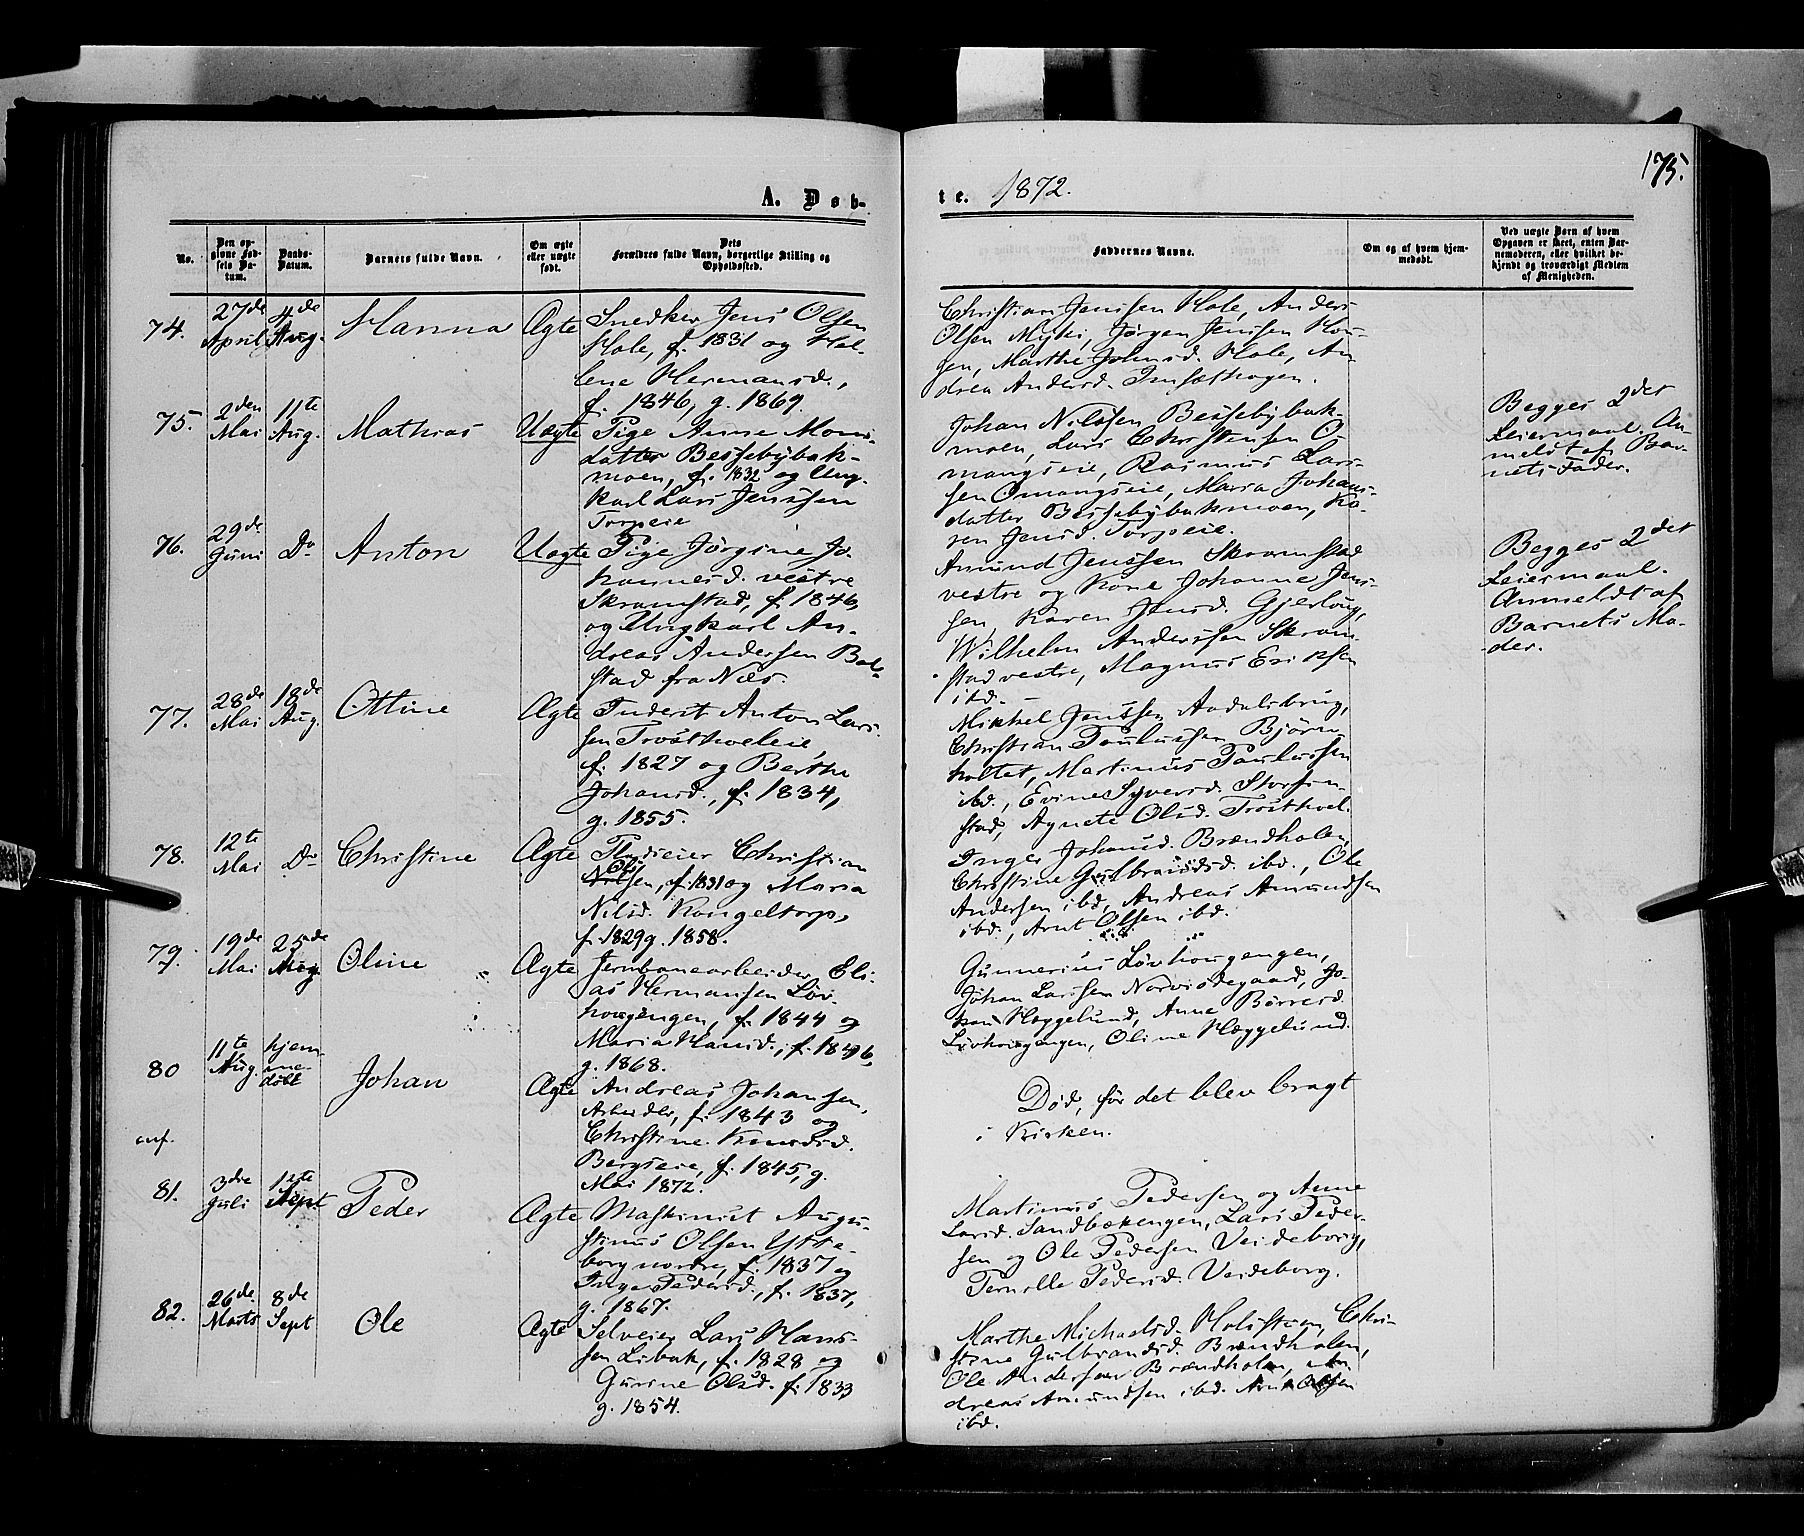 175.
A. Døb-
te. 1872.
No.
Den op-
givne Fød-
sels Da-
tum.
Daabs-
Datum.
Barnets fulde Navn.
Om ægte
eller uægte
født.
Dets
Forældres fulde Navn, borgerlige Stilling og
Opholdssted.
Faddernes Navne.
Om og af hvem hjem-
medøbt.
Ved uægte Børn af hvem
Opgaven er skeet, enten Bar-
nemoderen, eller hvilket be-
kjendt og troværdigt Medlem
af Menigheden.
74.
27de
April
4de
Aug.
Hanna
Ægte
Snedker Jens Olsen
Hole, f. 1831 og Hel-
lene Hermansd.,
f. 1846, g. 1869.
Christian Jenssen Hole, Anders
Olsen Myhr, Jørgen Jenssen Hou-
gen, Marthe Johnsd. Hole, An-
drea Andersd. Imsæthagen.
75.
2den
Mai
11te
Aug.
Mathias
Uægte
Pige Anne Mons-
datter Bessebybak-
moen, f. 1832 og Ung-
karl Lars Jenssen
Torpeie
Johan Nilssen Bessebybak-
moen, Lars Christensen O-
mangseie, Rasmus Lars-
sen Omangseie, Maria Johans-
datter Bessebybakmoen, Ka-
ren Jensd. Torpeie.
Begges 2det
Leiermaal. An-
meldt af Bar-
nets Fader.
76.
29de
Juni
Do
Anton
Uægte
Pige Jørgine Jo-
hannesd. vestre
Skramstad, f. 1846,
og Ungkarl An-
dreas Andersen Bol-
stad fra Næs.
Amund Jenssen Skramstad
vestre og Kone Johanne Jens-
sen, Karen Jensd. Gjerlöug,
Wilhelm Anderssen Skram-
stad vestre, Magnus Eriksen
ibd.
Begges 2det
Leiermaal.
Anmeldt af
Barnets Mo-
der.
77.
28de
Mai
18de
Aug.
Ottine
Ægte
Inderst Anton Lars-
sen Trostholeie,
f. 1827 og Berthe
Johansd., f. 1834,
g. 1855.
Mikkel Jenssen Aadalsbrug,
Christian Paulussen Björn-
holtet, Martinus Paulussen
ibd., Evine Syversd. Storhn-
stad, Agnete Olsd. Trosthoel.
78.
12te
Mai
Do
Christine
Ægte
Christian
Ols
Nilsen, f. 1831 og Maria
Nilsd. Kongeltorp,
f. 1829 g. 1858.
Inger Johansd. Brændholen,
Christine Gulbrandsd. ibd., Ole
Andersen ibd, Andreas Amundsen
ibd., Arnt Olsen ibd.
79.
19de
Mai
25de
Aug.
Oline
Ægte
Jernbanearbeider Eli-
as Hermansen Löv-
hougengen, f. 1844 og
Maria Hansd., f. 1846,
g. 1868.
Gunnerius Lövhougengen,
Johan Larssen Norvisdegaard, Jo-
han Hæggelund, Anne Börresd.
Lövhougengen, Oline Hæggelund.
80
11te
Aug.
hjem-
me-
döbt
Johan
Ægte
Andreas Johansen,
Arbeider, f. 1843 og
Christine Knudsd.
Bergseie, f. 1845, g.
Mai 1872.
Död, för det blev bragt
i Kirken.
anf.
81.
3die
Juli
1ste
Sept
Peder
Ægte
Maskinist Augu-
stinus Olsen Ytte-
borg nordre, f. 1837 og
Inger Pedersd., f. 1837,
g. 1867.
Martinus Pedersen og Anne
Larsd. Sandbækengen, Lars Peder-
sen og Ole Pedersen Veideborg,
Pernille Pedersd. Veideborg.
82.
26de
Marts
8de
Sept
Ole
Ægte
Selveier Lars Hans-
sen Libak, f. 1828 og
Gurine Olsd. f. 1833
g. 1854.
Marthe Michaelsd. Holstuen, Chri-
stine Gulbrandsd. Brændholen,
Ole Andersen Brændholen, An-
dreas Amundsen ibd. Arnt Olsen
ibd.